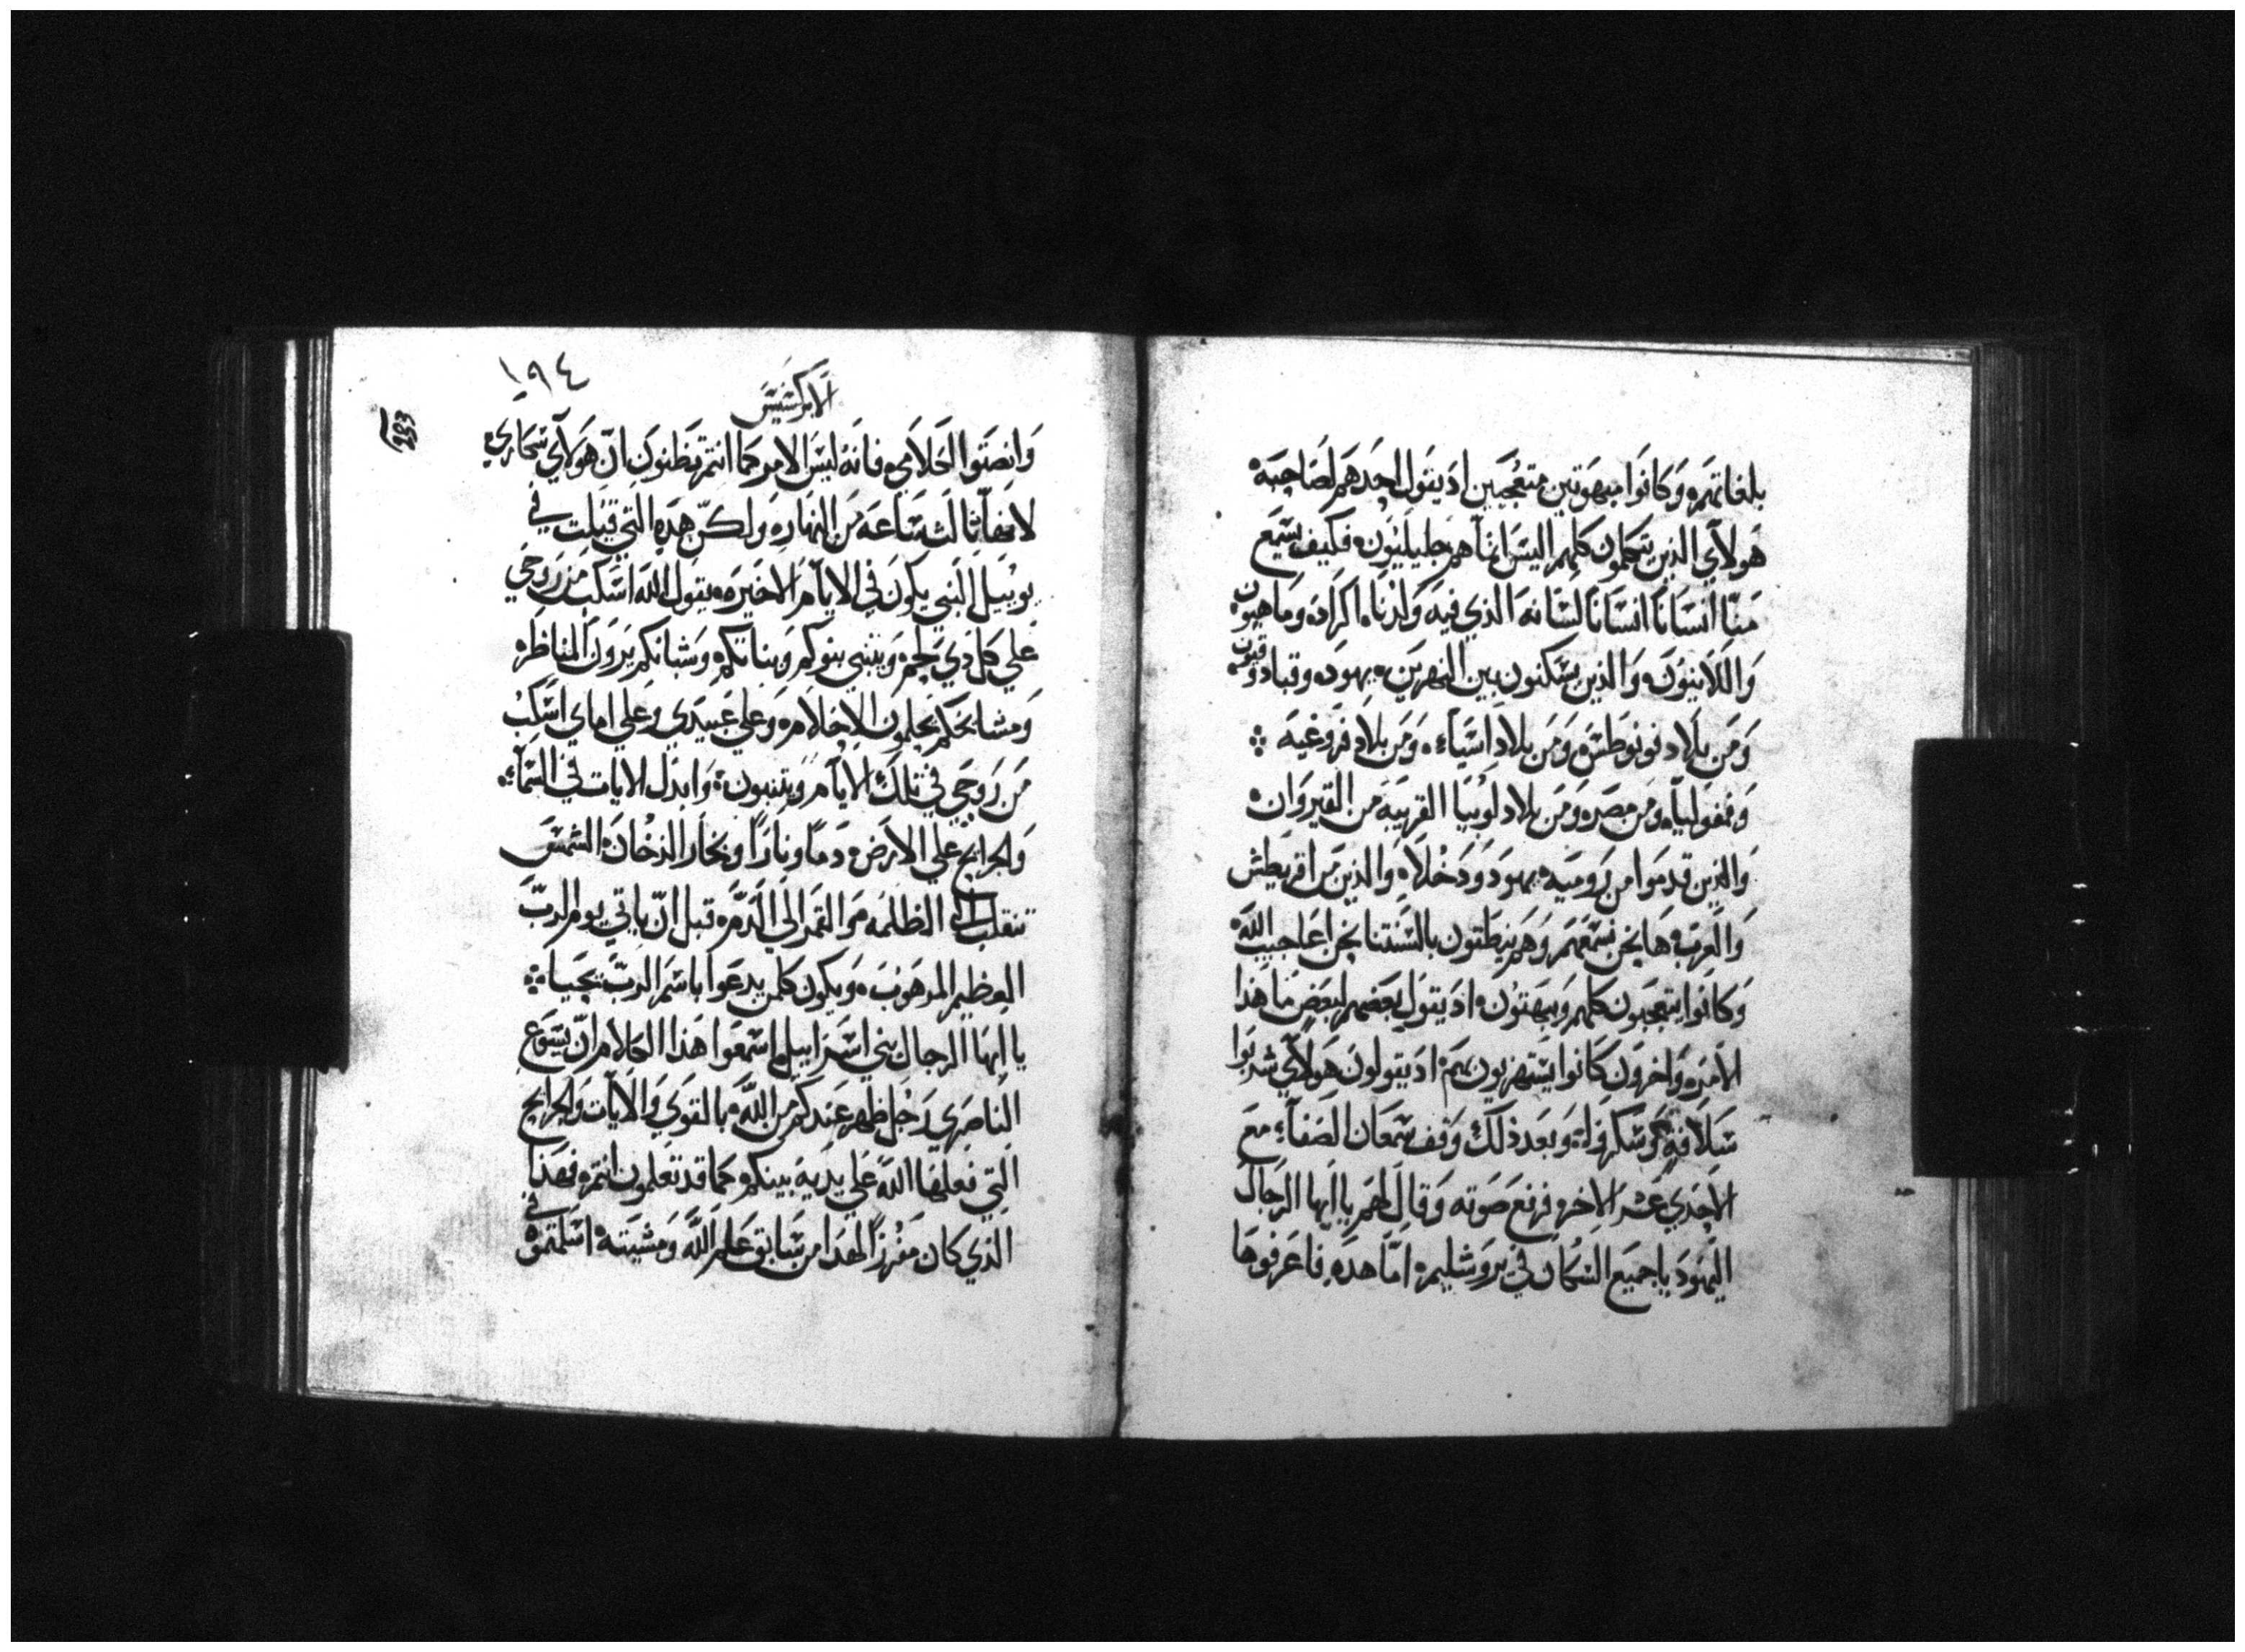 بلغاتهم وكانوا مبهوتين متعجبين اد يقول احدهم لصاحبه
هولآي الذين يتكلمون كلهم اليس انمآ هم جليليون فكيف يسمع
منا انسانا انسانا لسانه الذي فيه ولدنا اكراد وماهيون
واللانيون والذين يسكنون بين النهرين يهود وقبادوقيون
ومن بلاد فونوطش ومن بلاد اسيآء ومن بلاد فروغيه
وفمفوليآ ومن مصر ومن بلاد لوبيا القريبه من القيروان
والذين قدموا من روميه يهود ودخلاء والذين من اقريطش
والعرب ها نحن نسمعهم وهم ينطقون بالسنتنا نحن اعاجيب الله
وكانوا يتعجبون كلهم ويبهتون اد يقول بعضهم لبعض ما هذا
الامر واخرون كانوا يستهزيون بهم اد يقولون هولآي شربوا
سلافة وسكروا وبعد ذلك وقف سمعان الصفآء مع
الاحدي عشر الاخر فرفع صوته وقال لهم يا ايها الرجال
اليهود يا جميع السكان في يروشليم امّا هده فاعرفوها
١٩٤
الابركسيس
193
وانصتوا لكلامي فانه ليس الامر كما انتم تظنون انّ هولآي سكاري
لانها ثالث ساعه من النهار ولكنّ هده التي قيلت في
يوييل النبي يكون في الايآم الاخيره يقول الله اسكب من روحي
علي كل دي لحم ويتنبي بنوكم وبناتكم وشبانكم يرون المناظر
ومشايخكم يحلمون الاحلام وعلي عبيدي وعلي اماي اسكب
من روحي في تلك الايآم ويتنبون وابدل الايات في السمآء
والجرايح علي الارض دما ونارا وبخار الدخان الشمس
تنقلب الي الظلمه والقمر الي الدم قبل انّ ياتي يوم الربّ
العظيم المرهوب ويكون كلمن يدعوا باسم الربّ يحيا
يا ايها الرجال بني اسراييل اسمعوا هذا الكلام انّ يسوع
الناصري رجل ظهر عندكم من اللّه بالقوي والايآت والجرايح
التي فعلها الله علي يديه بينكم كما قد تعلمون انتم فهذا
الذي كان مفرزا لهدا من سابق علم اللّه ومشيته اسلمتموه في